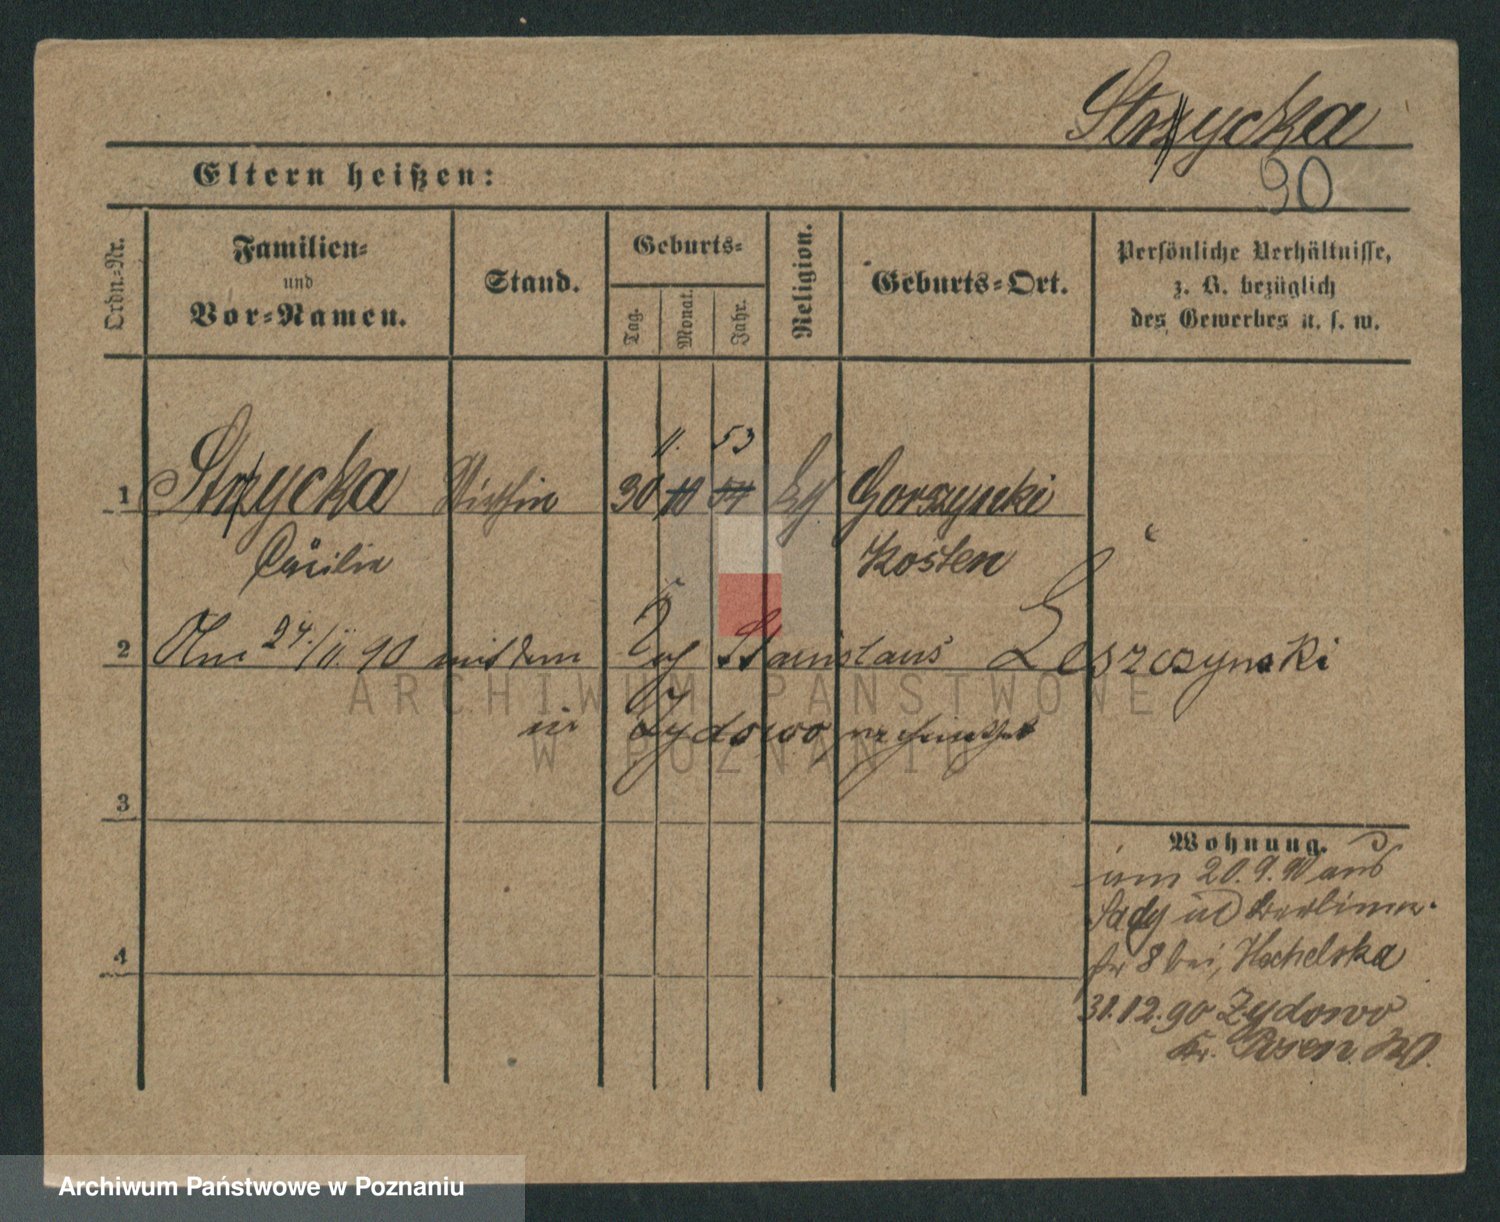 Strzycka
90
Eltern heißen:
Ordn.-Nr.
Familien-
und
Vor-Namen.
Stand.
Geburts-
Tag.
Monat.
Jahr.
Religion.
Geburts-Ort.
Persönliche Verhältnisse,
z. B. bezüglich
des Gewerbes u. s. w.
11. 53
1 Strzycka 30 10 54 Gorszynki
Cäcilie Kosten
2 Am 24./11. 90 mit dem Stanislaus Leszczynski
in Żydowo
ARCHIWUM PAŃSTWOWE
W POZNANIU
3
Wohnung.
am 20.9.90 aus
Sady Berliner-
str 8 bei,
4
31.12.90 Zydowo
Kr. Posen
Archiwum Państwowe w Poznaniu